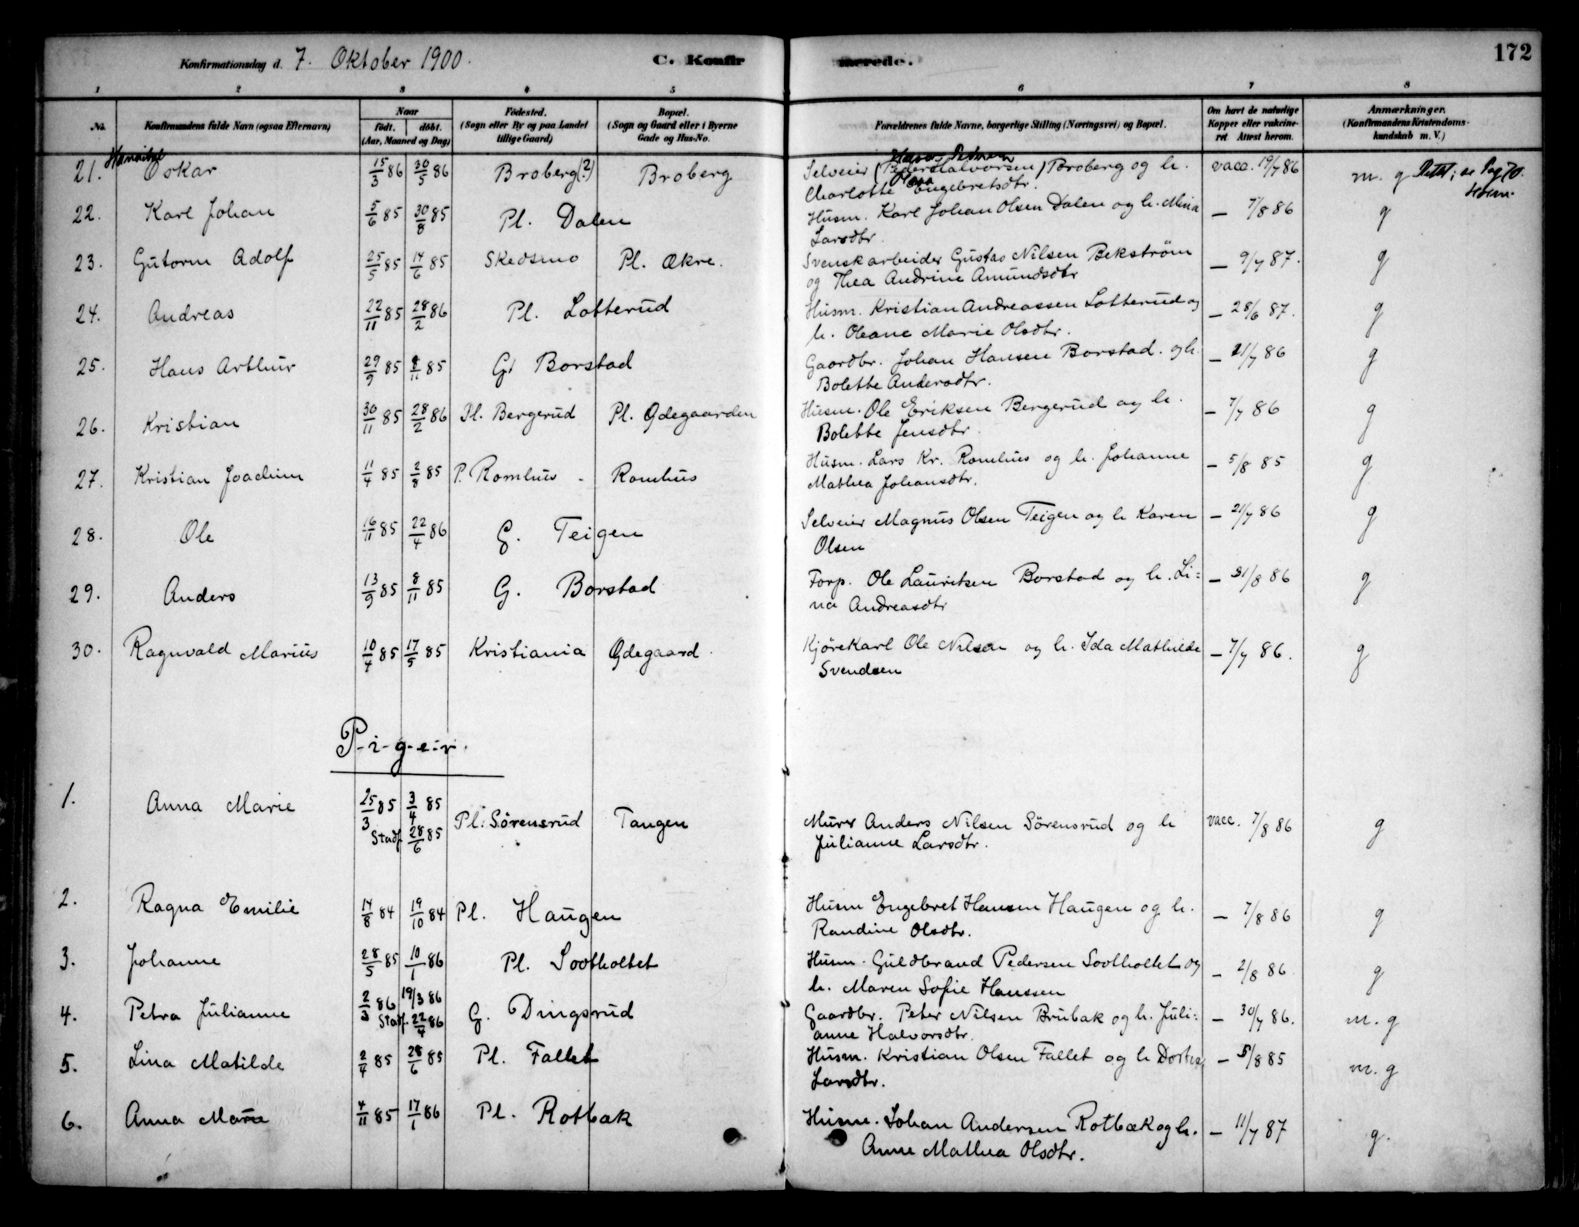 Konfirmationsdag d. 7. Oktober 1900. C. Konfirmerede. 172
1 2 3 4 5 6 7 8
No. Konfirmandens fulde Navn (ogsaa Efternavn) Naar født. døbt. (Aar, Maaned og Dag) Fødested. (Sogn eller By og paa Landet tillige Gaard) Bopæl. (Sogn og Gaard eller i Byerne Gade og Hus-No. Forældrenes fulde Navne, borgerlige Stilling (Næringsvei) og Bopæl. Om havt de naturlige Kopper eller vaccineret. Attest herom. Anmærkninger. (Konfirmandens Kristendomskundskab m. V.)
Hans Pedersen
21. Oskar 15/3 86 30/5 86 Broberg (?) Broberg Selveier (Peder Halvorsen) Broberg og h. vacc. 19/7 86 m. g Rettet; se Pag 70.
Olava
Charlotte Engebretsdtr.
22. Karl Johan 5/6 85 30/8 85 Pl. Dalen Husm. Karl Johan Olsen Dalen og h. Mina — 7/8 86 g
Larsdtr.
23. Gutorm Adolf 25/5 85 14/6 85 Skedsmo Pl. Økre. Svenskarbeider Gustav Nilsen Bekstrøm — 9/7 87. g
og Thea Andrine Amundsdtr
24. Andreas 22/11 85 28/2 86 Pl. Lotterud Husm. Kristian Andreassen Lotterud og — 28/6 87. g
h. Oleane Marie Olsdtr.
25. Hans Arthur 29/9 85 8/11 85 G. Borstad Gaardbr. Johan Hansen Borstad. og h. — 21/7 86 g
Bolette Andersdtr.
26. Kristian 30/11 85 28/2 86 Pl. Bergerud Pl. Ødegaarden Husm. Ole Eriksen Bergerud og h. — 7/7 86 g
Bolette Jensdtr.
27. Kristian Joachim 11/4 85 2/8 85 P. Romhus - Romhus Husm. Lars Kr. Romhus og h. Johanne — 5/8 85 g
Mathea Johansdtr.
28. Ole 16/11 85 22/4 86 G. Teigen Selveier Magnus Olsen Teigen og h Karen — 21/7 86 g
Olsen
29. Anders 13/9 85 8/11 85 G. Borstad Forp. Ole Lauritsen Borstad og h. Li= — 31/8 86 g
na Andreasdtr
30. Ragnvald Marius 10/4 85 17/5 85 Kristiania Ødegaard Kjørekarl Ole Nilsen og h. Ida Mathilde — 7/7 86. g
Svendsen
P-i-g-e-r.
1. Anna Marie 25/3 85 3/4 85 Stadf. 28/6 85 Pl. Sørensrud Tangen Murer Anders Nilsen Sørensrud og h vacc. 7/8 86 g
Julianne Larsdtr.
2. Ragna Emilie 14/8 84 19/10 84 Pl. Haugen Husm Engebret Hansen Haugen og h. — 7/8 86 g
Randine Olsdtr.
3. Johanne 28/5 85 10/1 86 Pl. Sootholtet Husm. Guldbrand Pedersen Sootholtet og — 2/8 86 g
h. Maren Sofie Hanssen
4. Petra Julianne 2/3 86 19/3 86 Stadf. 22/4 86 G. Dingsrud Gaardbr. Peter Nilsen Brubak og h. Juli= — 30/7 86. m. g
anne Halvorsdtr.
5. Lina Matilde 2/4 85 28/6 85 Pl. Fallet Husm. Kristian Olsen Fallet og h Dortea — 5/8 85 m. g
Larsdtr.
6. Anna Marie 4/11 85 17/1 86 Pl. Rotbæk Husm. Johan Andersen Rotbæk og h. — 11/7 87 g.
Anne Mathea Olsdtr.